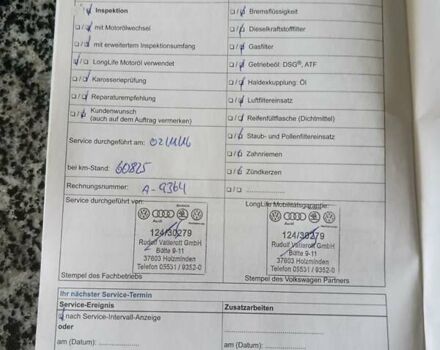 Inspektion
mit Motorölwechsel
mit erweitertem Inspektionsumfang
LongLife Motoröl verwendet
Karosserieprüfung
Reparaturempfehlung
Kundenwunsch
(auch auf dem Auftrag vermerken)
Service durchgeführt am:
bei km-Stand: 60825
Rechnungsnummer: A-9364
Bremsflüssigkeit
Dieselkraftstofffilter
Gasfilter
Getriebeöl: DSG®, ATF
Haldexkupplung: Öl
Luftfiltereinsatz
Reifenfüllflasche (Dichtmittel)
Staub- und Pollenfiltereinsatz
Zahnriemen
Zündkerzen
Service durchgeführt von:
Audi
124/30279
Rudolf Vatterott GmbH
Bülte 9-11
37603 Holzminden
Telefon 05531 / 9352-0
Stempel des Fachbetriebs
LongLife Mobilitätsgarantie:
Audi
124/30279
Rudolf Vatterott GmbH
Bülte 9-11
37603 Holzminden
Telefon 05531 / 9352-0
Stempel des Volkswagen Partners
Ihr nächster Service-Termin
Service-Ereignis
Zusatzarbeiten
nach Service-Intervall-Anzeige
oder
am (Datum):
am (Datum):